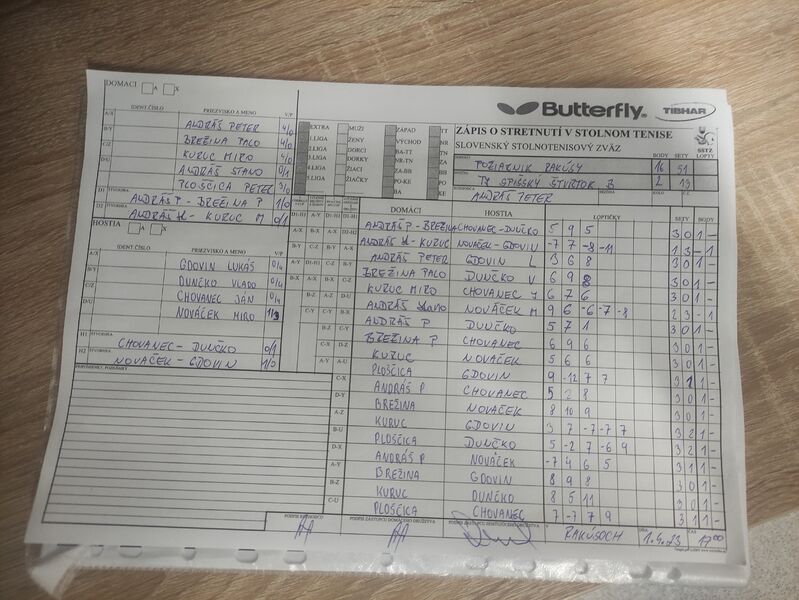 DOMÁCI A X
IDENT.ČÍSLO PRIEZVISKO A MENO V/P
A/X ANDRÁŠ PETER 4/0
B/Y BREŽINA PALO 4/0
C/Z KURUC MIRO 4/0
ANDRÁŠ STANO 0/1
PLOŠČICA PETER 3/0
D1 ŠTVORHRA ANDRÁŠ P - BREŽINA P 1/0
D2 ŠTVORHRA ANDRÁŠ St - KURUC M 0/1
HOSTIA A X
IDENT.ČÍSLO PRIEZVISKO A MENO V/P
A/X GDOVIN LUKÁŠ 0/4
B/Y DUNČKO VLADO 0/4
C/Z CHOVANEC JÁN 0/4
D/U NOVÁČEK MIRO 1/3
H1 ŠTVORHRA CHOVANEC - DUNČKO 0/1
H2 ŠTVORHRA NOVÁČEK - GDOVIN 1/0
PRIPOMIENKY, POZNÁMKY
EXTRA MUŽI ZÁPAD TT
1.LIGA ŽENY VÝCHOD NR
2.LIGA DORCI BA-TT TN
3.LIGA DORKY NR-TN ZA
4.LIGA ŽIACI ZA-BB BB
5.LIGA ŽIAČKY PO-KE PO
BA KE
Butterfly. TIBHAR
ZÁPIS O STRETNUTÍ V STOLNOM TENISE
SLOVENSKÝ STOLNOTENISOVÝ ZVÄZ
SSTZ
BODY SETY LOPTY
POŽIARNIK RAKÚSY 16 51
TJ SPIŠSKÝ ŠTVRTOK B 2 13
ANDRÁŠ PETER
DOMÁCI HOSTIA LOPTIČKY SETY BODY
ANDRÁŠ P - BREŽINA CHOVANEC - DUNČKO 5 9 5 3 0 1 -
ANDRÁŠ St - KURUC NOVÁČEK - GDOVIN -7 7 -8 -11 1 3 - 1
ANDRÁŠ PETER GDOVIN L 3 6 8 3 0 1 -
BREŽINA PALO DUNČKO V 6 9 8 3 0 1 -
KURUC MIRO CHOVANEC J 6 7 6 3 0 1 -
ANDRÁŠ Stano NOVÁČEK M 9 6 -6 -7 -8 2 3 - 1
ANDRÁŠ P DUNČKO 5 7 1 3 0 1 -
BREŽINA P CHOVANEC 6 9 6 3 0 1 -
KURUC NOVÁČEK 5 6 6 3 0 1 -
PLOŠČICA GDOVIN 9 -12 7 7 3 1 1 -
ANDRÁŠ P CHOVANEC 5 2 8 3 0 1 -
BREŽINA NOVÁČEK 8 10 9 3 0 1 -
KURUC GDOVIN 3 7 -7 -7 7 3 2 1 -
PLOŠČICA DUNČKO 5 -2 7 -6 4 3 2 1 -
ANDRÁŠ P NOVÁČEK -7 4 6 5 3 1 1 -
BREŽINA GDOVIN 8 9 8 3 0 1 -
KURUC DUNČKO 8 5 11 3 0 1 -
PLOŠČICA CHOVANEC 7 -7 7 9 3 1 1 -
PODPIS ROZHODCU PODPIS ZÁSTUPCU DOMÁCEHO DRUŽSTVA PODPIS ZÁSTUPCU HOSŤUJÚCEHO DRUŽSTVA
V RAKÚSOCH DŇA 1.4.23 ČAS 17 00